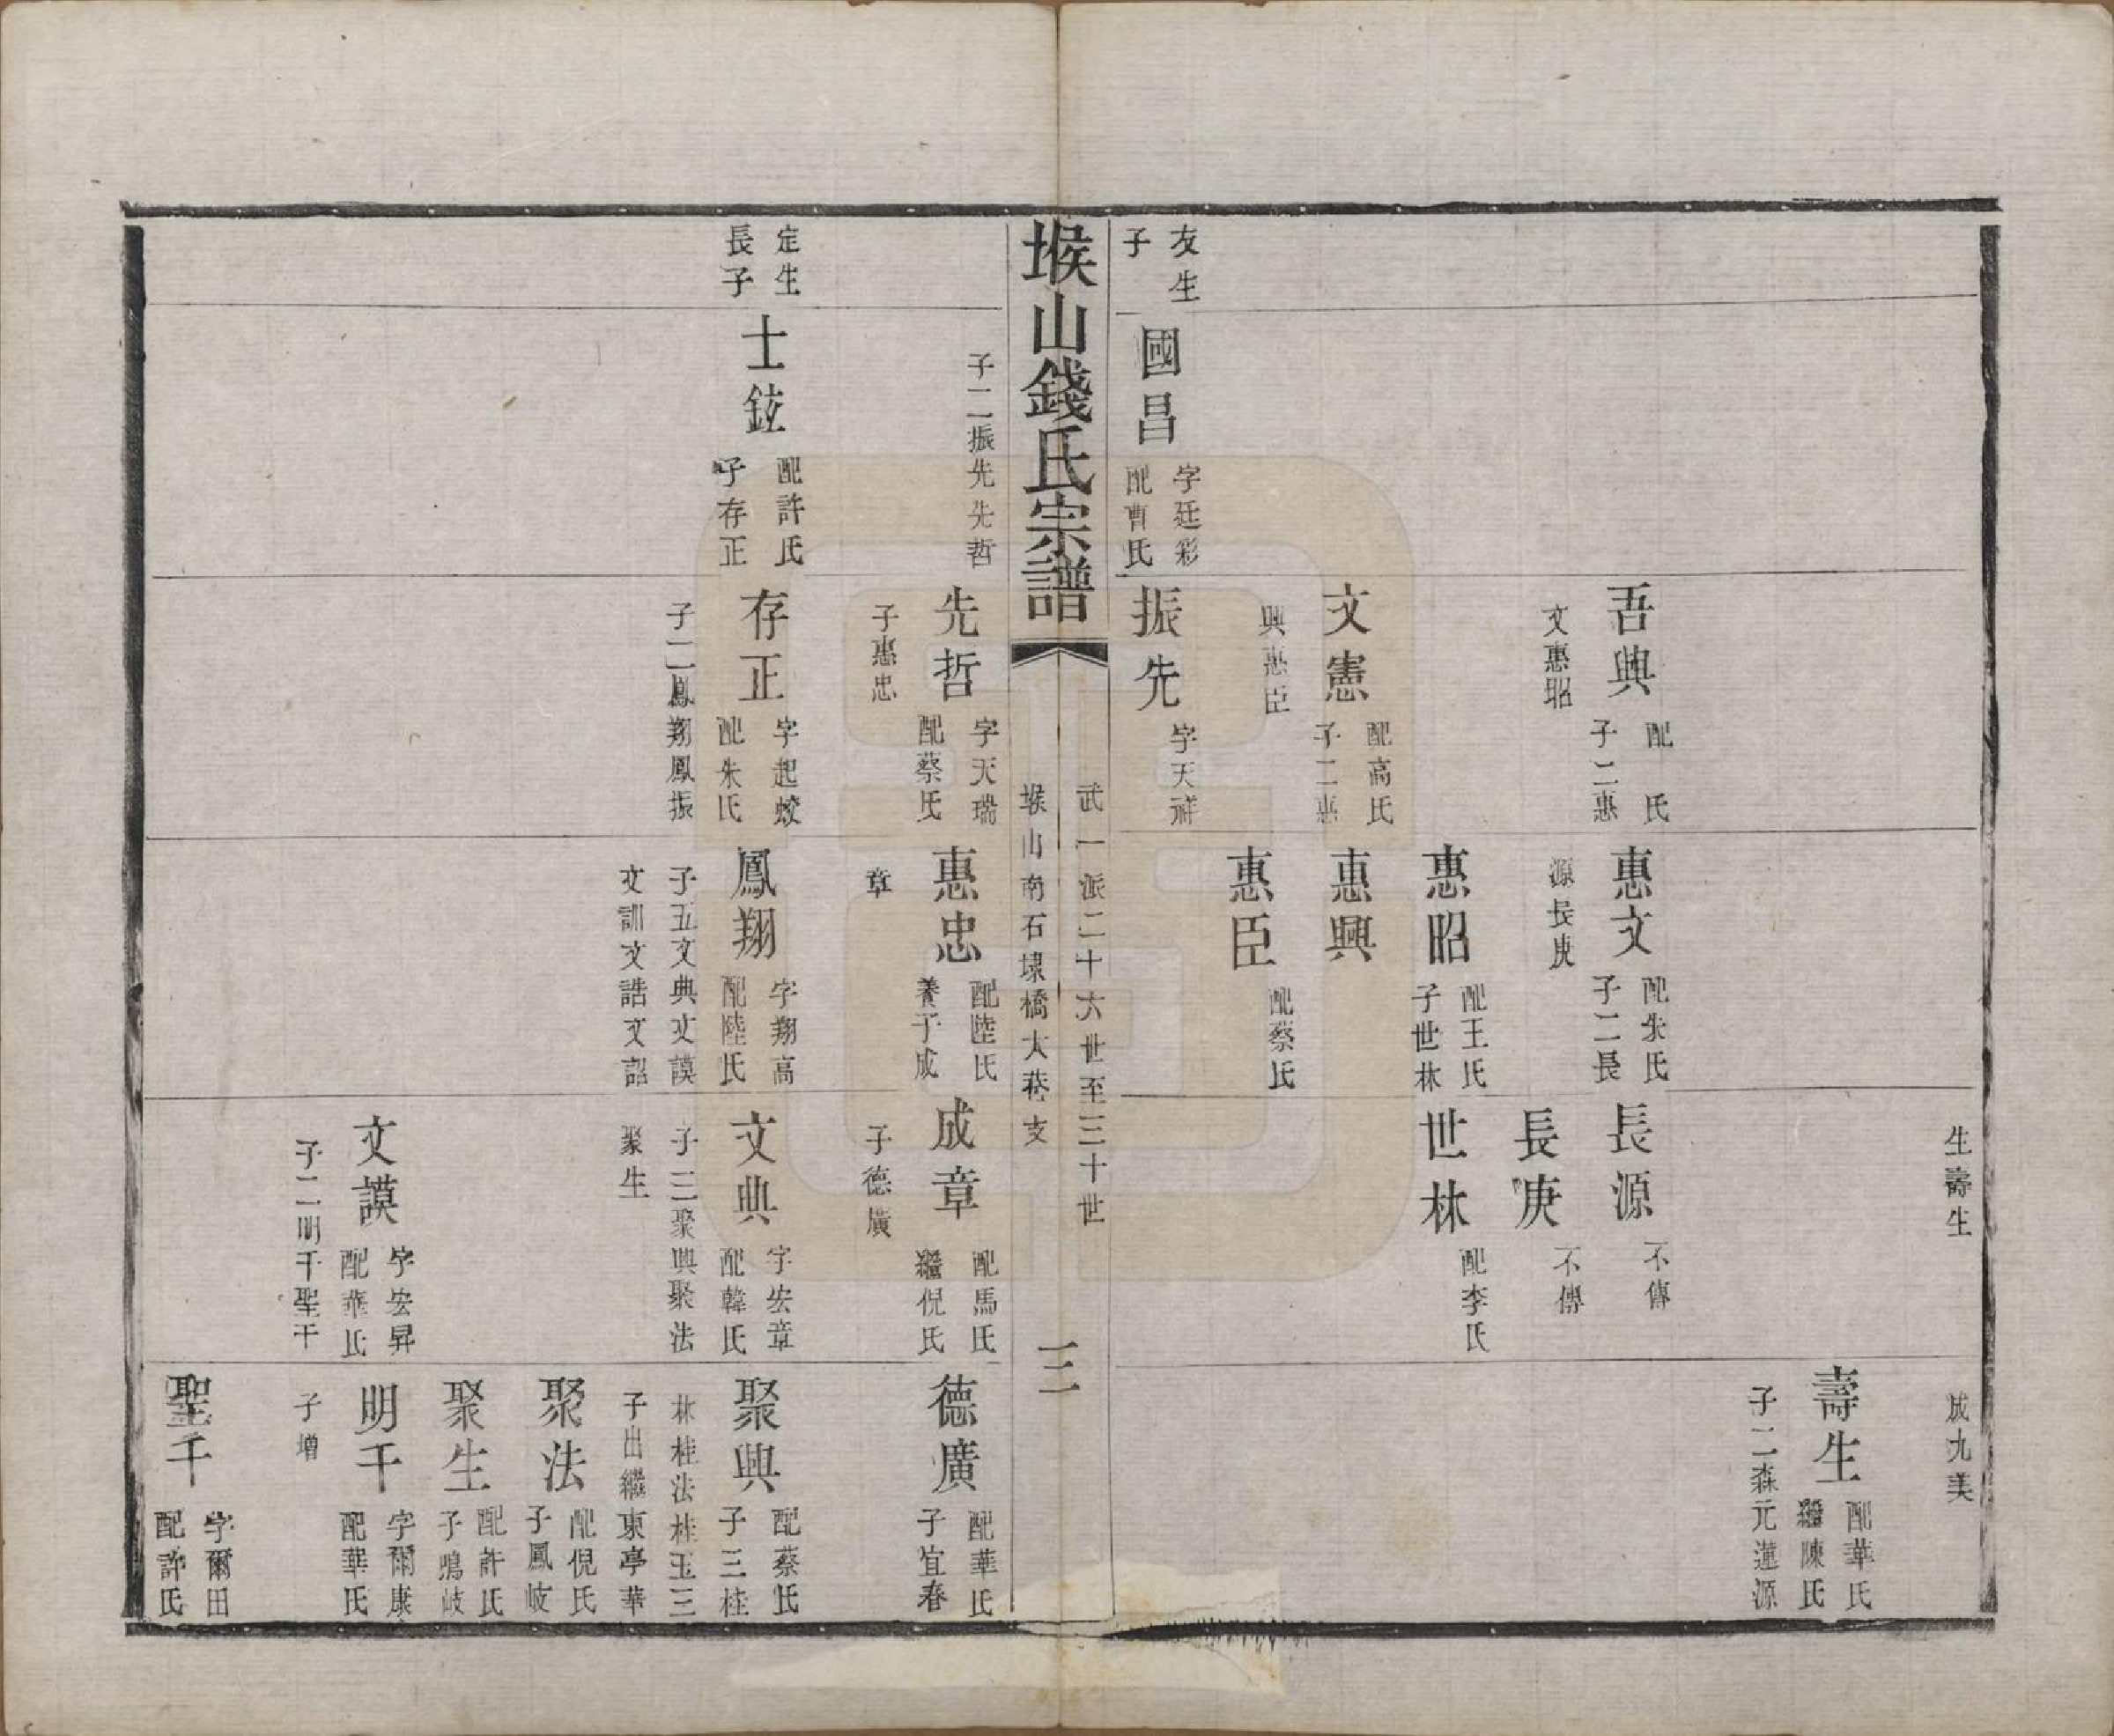 生壽生
成九美
壽生
配華氏
繼陳氏
子二森元蓮源
吾興
配　氏
子二惠
文惠昭
惠文
配朱氏
子二長
源長庚
長源
不傳
長庚
不傳
惠昭
配王氏
子世林
世林
配李氏
文憲
配高氏
子二惠
興惠臣
惠興
惠臣
配蔡氏
友生
子
國昌
字廷彩
配曹氏
振先
字天祥
堠山錢氏宗譜
武一派二十六世至三十世
堠山南石埭橋大巷支
三
子二振先先哲
先哲
字天瑞
配蔡氏
子惠忠
惠忠
配陸氏
養子成
章
成章
配馬氏
繼倪氏
子德廣
德廣
配華氏
子宜春
定生
長子
士鉉
配許氏
子存正
存正
字起蛟
配朱氏
子二鳳翔鳳振
鳳翔
字翔高
配陸氏
子五文典文謨
文訓文誥文詔
文典
字宏章
配韓氏
子三聚興聚法
聚生
聚興
配蔡氏
子三桂
林桂法桂玉三
子出繼東亭華
聚法
配倪氏
子鳳岐
聚生
配許氏
子鳴岐
文謨
字宏昇
配華氏
子二明千聖千
明千
字爾康
配華氏
子增
聖千
字爾田
配許氏